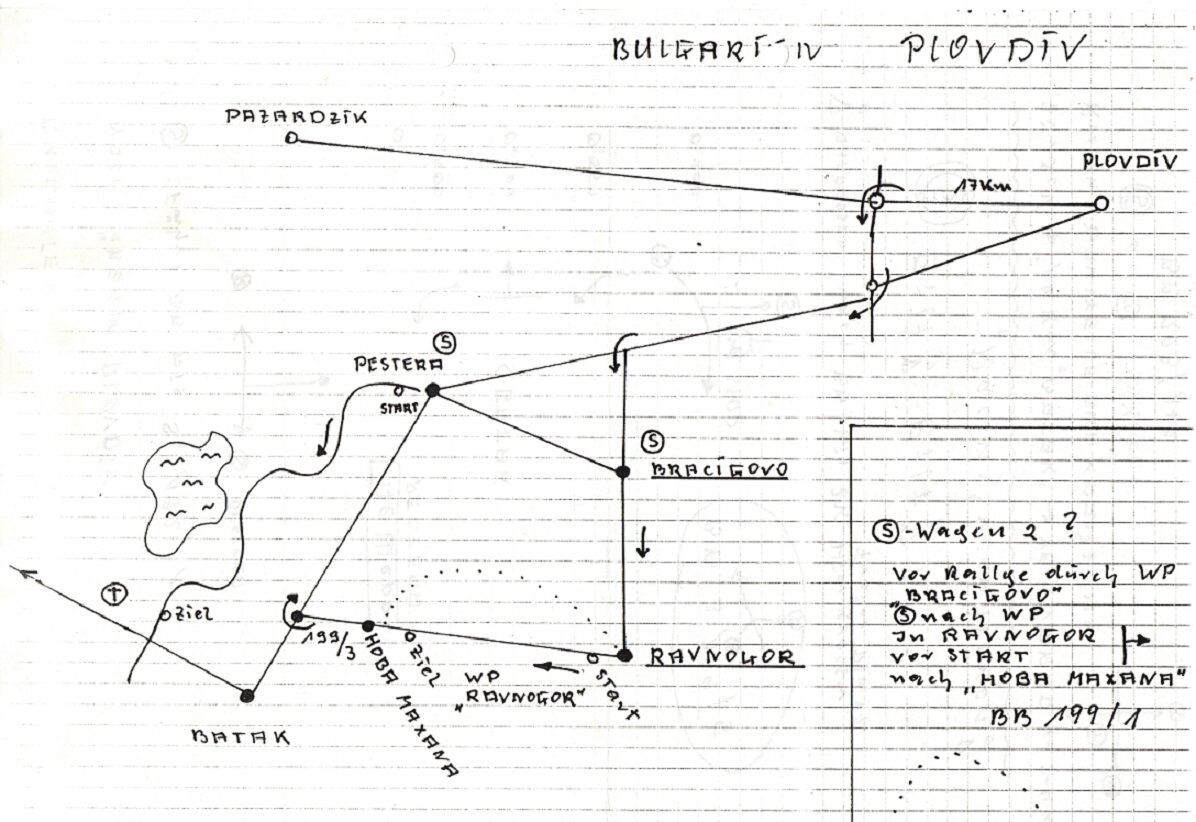 BULGARI-IV PLOVDIV
PAZARDZIK
PLOVDIV
17Km
S
PESTERA
START
S
BRACIGOVO
S-Wagen 2 ?
vor Rallye durch WP
"BRACIGOVO"
S nach WP
In RAVNOGOR
vor START
nach "HOBA MAXANA"
BB 199/1
T
Ziel
199/3
HOBA MAXANA
Ziel
WP
"RAVNOGOR"
Start
RAVNOGOR
BATAK